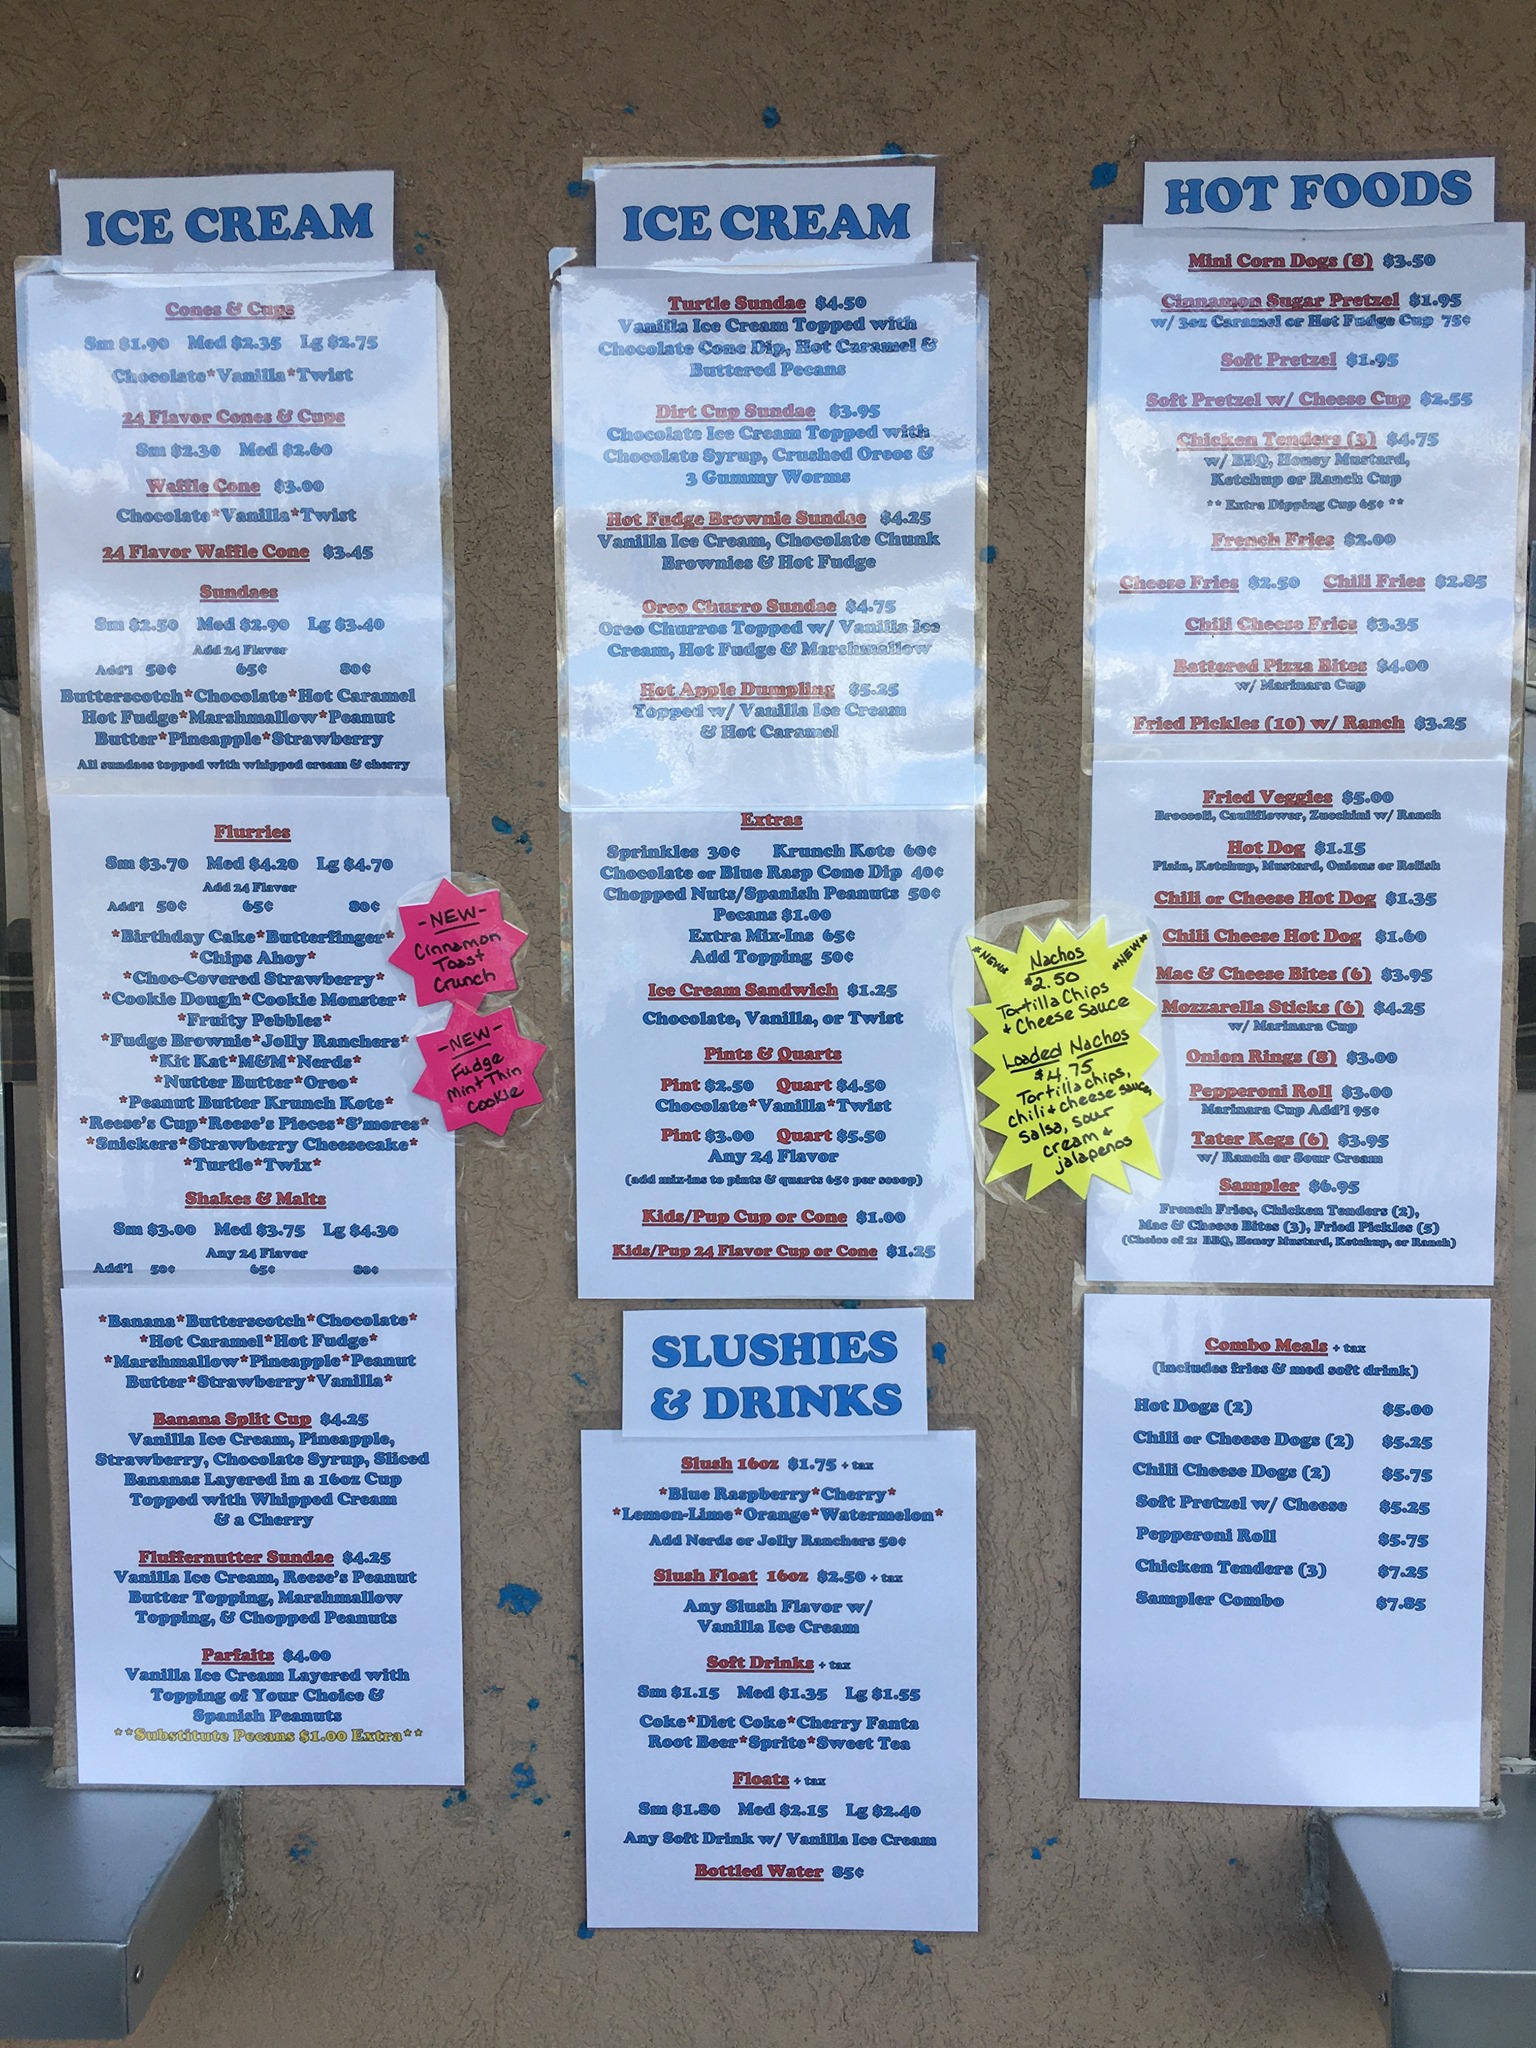 ICE CREAM
Cones & Cups
Sm $1.90 Med $2.35 Lg $2.75
Chocolate*Vanilla*Twist
24 Flavor Cones & Cups
Sm $2.30 Med $2.60
Waffle Cone $3.00
Chocolate*Vanilla*Twist
24 Flavor Waffle Cone $3.45
Sundaes
Sm $2.50 Med $2.90 Lg $3.40
Add 24 Flavor
Add'l 50¢ 65¢ 80¢
Butterscotch*Chocolate*Hot Caramel
Hot Fudge*Marshmallow*Peanut
Butter*Pineapple*Strawberry
All sundaes topped with whipped cream & cherry
Flurries
Sm $3.70 Med $4.20 Lg $4.70
Add 24 Flavor
Add'l 50¢ 65¢ 80¢
*Birthday Cake*Butterfinger*
*Chips Ahoy*
*Choc-Covered Strawberry*
*Cookie Dough*Cookie Monster*
*Fruity Pebbles*
*Fudge Brownie*Jolly Ranchers*
*Kit Kat*M&M*Nerds*
*Nutter Butter*Oreo*
*Peanut Butter Krunch Kote*
*Reese's Cup*Reese's Pieces*S'mores*
*Snickers*Strawberry Cheesecake*
*Turtle*Twix*
Shakes & Malts
Sm $3.00 Med $3.75 Lg $4.30
Any 24 Flavor
Add'l 50¢ 65¢ 80¢
*Banana*Butterscotch*Chocolate*
*Hot Caramel*Hot Fudge*
*Marshmallow*Pineapple*Peanut
Butter*Strawberry*Vanilla*
Banana Split Cup $4.25
Vanilla Ice Cream, Pineapple,
Strawberry, Chocolate Syrup, Sliced
Bananas Layered in a 16oz Cup
Topped with Whipped Cream
& a Cherry
Fluffernutter Sundae $4.25
Vanilla Ice Cream, Reese's Peanut
Butter Topping, Marshmallow
Topping, & Chopped Peanuts
Parfaits $4.00
Vanilla Ice Cream Layered with
Topping of Your Choice &
Spanish Peanuts
**Substitute Pecans $1.00 Extra**
-NEW-
Cinnamon
Toast
Crunch
-NEW-
Fudge
Mint Thin
Cookie
ICE CREAM
Turtle Sundae $4.50
Vanilla Ice Cream Topped with
Chocolate Cone Dip, Hot Caramel &
Buttered Pecans
Dirt Cup Sundae $3.95
Chocolate Ice Cream Topped with
Chocolate Syrup, Crushed Oreos &
3 Gummy Worms
Hot Fudge Brownie Sundae $4.25
Vanilla Ice Cream, Chocolate Chunk
Brownies & Hot Fudge
Oreo Churro Sundae $4.75
Oreo Churros Topped w/ Vanilla Ice
Cream, Hot Fudge & Marshmallow
Hot Apple Dumpling $5.25
Topped w/ Vanilla Ice Cream
& Hot Caramel
Extras
Sprinkles 30¢ Krunch Kote 60¢
Chocolate or Blue Rasp Cone Dip 40¢
Chopped Nuts/Spanish Peanuts 50¢
Pecans $1.00
Extra Mix-Ins 65¢
Add Topping 50¢
Ice Cream Sandwich $1.25
Chocolate, Vanilla, or Twist
Pints & Quarts
Pint $2.50 Quart $4.50
Chocolate*Vanilla*Twist
Pint $3.00 Quart $5.50
Any 24 Flavor
(add mix-ins to pints & quarts 65¢ per scoop)
Kids/Pup Cup or Cone $1.00
Kids/Pup 24 Flavor Cup or Cone $1.25
SLUSHIES
& DRINKS
Slush 16oz $1.75 + tax
*Blue Raspberry*Cherry*
*Lemon-Lime*Orange*Watermelon*
Add Nerds or Jolly Ranchers 50¢
Slush Float 16oz $2.50 + tax
Any Slush Flavor w/
Vanilla Ice Cream
Soft Drinks + tax
Sm $1.15 Med $1.35 Lg $1.55
Coke*Diet Coke*Cherry Fanta
Root Beer*Sprite*Sweet Tea
Floats + tax
Sm $1.80 Med $2.15 Lg $2.40
Any Soft Drink w/ Vanilla Ice Cream
Bottled Water 85¢
*NEW* Nachos *NEW*
$2.50
Tortilla Chips
+ Cheese Sauce
Loaded Nachos
$4.75
Tortilla chips,
chili + cheese sauce,
salsa, sour
cream +
jalapenos
HOT FOODS
Mini Corn Dogs (8) $3.50
Cinnamon Sugar Pretzel $1.95
w/ 3oz Caramel or Hot Fudge Cup 75¢
Soft Pretzel $1.95
Soft Pretzel w/ Cheese Cup $2.55
Chicken Tenders (3) $4.75
w/ BBQ, Honey Mustard,
Ketchup or Ranch Cup
** Extra Dipping Cup 65¢ **
French Fries $2.00
Cheese Fries $2.50 Chili Fries $2.85
Chili Cheese Fries $3.35
Battered Pizza Bites $4.00
w/ Marinara Cup
Fried Pickles (10) w/ Ranch $3.25
Fried Veggies $5.00
Broccoli, Cauliflower, Zucchini w/ Ranch
Hot Dog $1.15
Plain, Ketchup, Mustard, Onions or Relish
Chili or Cheese Hot Dog $1.35
Chili Cheese Hot Dog $1.60
Mac & Cheese Bites (6) $3.95
Mozzarella Sticks (6) $4.25
w/ Marinara Cup
Onion Rings (8) $3.00
Pepperoni Roll $3.00
Marinara Cup Add'l 95¢
Tater Kegs (6) $3.95
w/ Ranch or Sour Cream
Sampler $6.95
French Fries, Chicken Tenders (2),
Mac & Cheese Bites (3), Fried Pickles (5)
(Choice of 2: BBQ, Honey Mustard, Ketchup, or Ranch)
Combo Meals + tax
(includes fries & med soft drink)
Hot Dogs (2) $5.00
Chili or Cheese Dogs (2) $5.25
Chili Cheese Dogs (2) $5.75
Soft Pretzel w/ Cheese $5.25
Pepperoni Roll $5.75
Chicken Tenders (3) $7.25
Sampler Combo $7.85